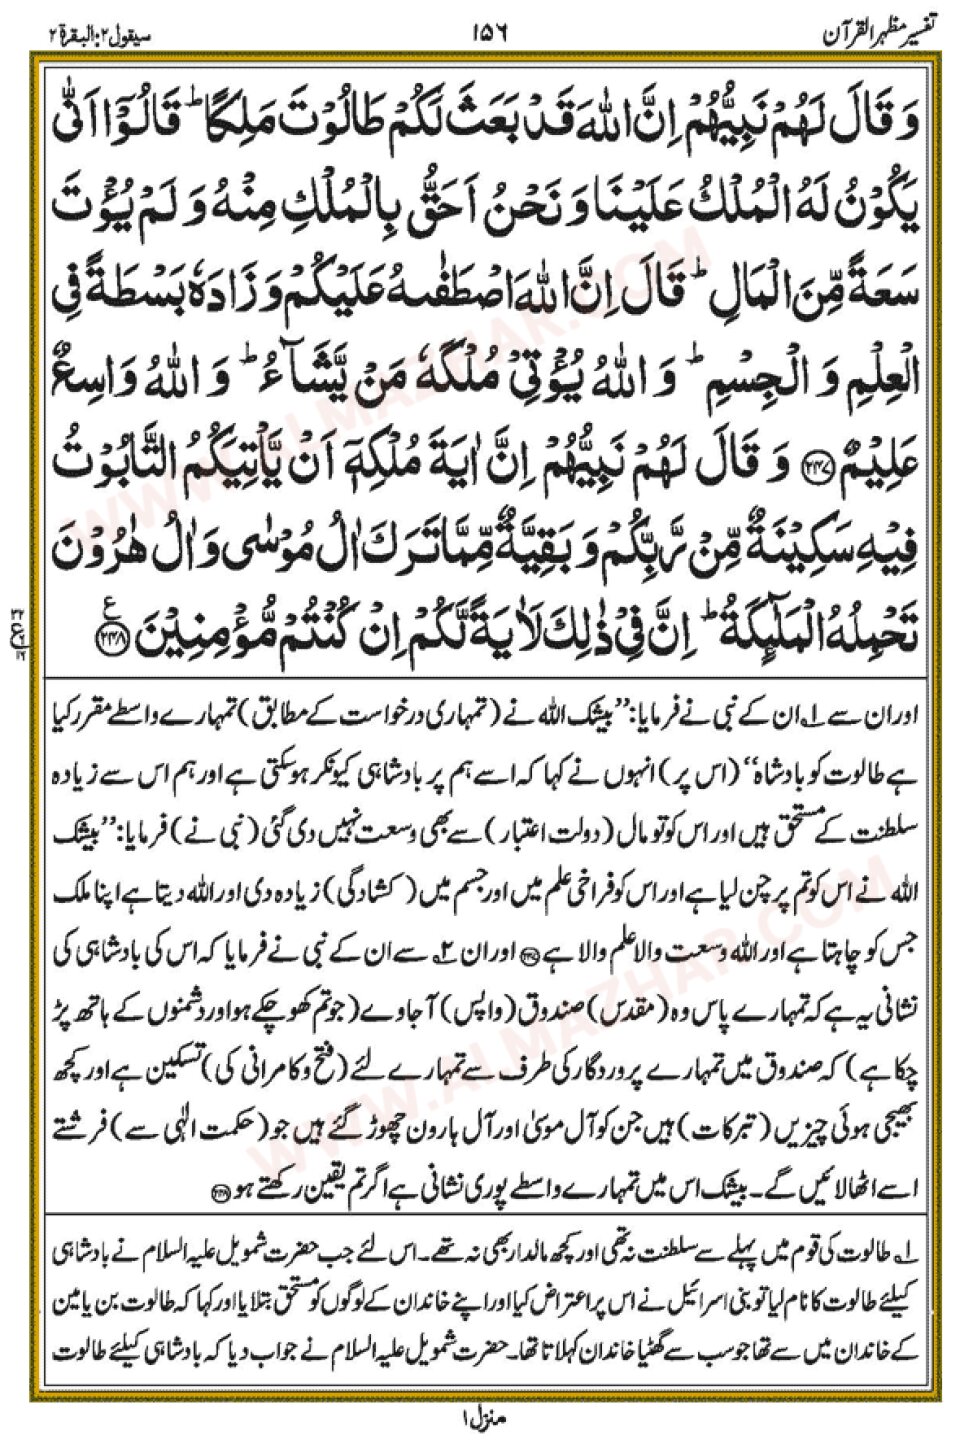 تفسیر مظہر القرآن ۱۵۶ سیقول ۲: البقرۃ ۲
وَقَالَ لَهُمْ نَبِيُّهُمْ اِنَّ اللّٰهَ قَدْ بَعَثَ لَكُمْ طَالُوْتَ مَلِكًا ؕ قَالُوْۤا اَنّٰى
يَكُوْنُ لَهُ الْمُلْكُ عَلَيْنَا وَنَحْنُ اَحَقُّ بِالْمُلْكِ مِنْهُ وَلَمْ يُؤْتَ
سَعَةً مِّنَ الْمَالِ ؕ قَالَ اِنَّ اللّٰهَ اصْطَفٰىهُ عَلَيْكُمْ وَزَادَهٗ بَسْطَةً فِى
الْعِلْمِ وَالْجِسْمِ ؕ وَاللّٰهُ يُؤْتِىْ مُلْكَهٗ مَنْ يَّشَآءُ ؕ وَاللّٰهُ وَاسِعٌ
عَلِيْمٌ ﴿۲۴۷﴾ وَقَالَ لَهُمْ نَبِيُّهُمْ اِنَّ اٰيَةَ مُلْكِهٖۤ اَنْ يَّاْتِيَكُمُ التَّابُوْتُ
فِيْهِ سَكِيْنَةٌ مِّنْ رَّبِّكُمْ وَبَقِيَّةٌ مِّمَّا تَرَكَ اٰلُ مُوْسٰى وَاٰلُ هٰرُوْنَ
تَحْمِلُهُ الْمَلٰٓئِكَةُ ؕ اِنَّ فِىْ ذٰلِكَ لَاٰيَةً لَّكُمْ اِنْ كُنْتُمْ مُّؤْمِنِيْنَ ﴿۲۴۸﴾ ع
اور ان سے ۱؎ ان کے نبی نے فرمایا: ’’بیشک اللہ نے (تمہاری درخواست کے مطابق) تمہارے واسطے مقرر کیا
ہے طالوت کو بادشاہ‘‘ (اس پر) انہوں نے کہا کہ اسے ہم پر بادشاہی کیونکر ہو سکتی ہے اور ہم اس سے زیادہ
سلطنت کے مستحق ہیں اور اس کو تو مال (دولت اعتبار) سے بھی وسعت نہیں دی گئی (نبی نے) فرمایا: ’’بیشک
اللہ نے اس کو تم پر چن لیا ہے اور اس کو فراخی علم میں اور جسم میں (کشادگی) زیادہ دی اور اللہ دیتا ہے اپنا ملک
جس کو چاہتا ہے اور اللہ وسعت والا علم والا ہے ﴿۲۴۷﴾ اور ان ۲؎ سے ان کے نبی نے فرمایا کہ اس کی بادشاہی کی
نشانی یہ ہے کہ تمہارے پاس وہ (مقدس) صندوق (واپس) آجاوے (جو تم کھو چکے ہو اور دشمنوں کے ہاتھ پڑ
چکا ہے) کہ صندوق میں تمہارے پروردگار کی طرف سے تمہارے لئے (فتح و کامرانی کی) تسکین ہے اور کچھ
بھیجی ہوئی چیزیں (تبرکات) ہیں جن کو آل موسیٰ اور آل ہارون چھوڑ گئے ہیں جو (حکمت الٰہی سے) فرشتے
اسے اٹھا لائیں گے۔ بیشک اس میں تمہارے واسطے پوری نشانی ہے اگر تم یقین رکھتے ہو ﴿۲۴۸﴾
۱؎ طالوت کی قوم میں پہلے سے سلطنت نہ تھی اور کچھ مالدار بھی نہ تھے۔ اس لئے جب حضرت شمویل علیہ السلام نے بادشاہی
کیلئے طالوت کا نام لیا تو بنی اسرائیل نے اس پر اعتراض کیا اور اپنے خاندان کے لوگوں کو مستحق بتلایا اور کہا کہ طالوت بن یامین
کے خاندان میں سے تھا جو سب سے گھٹیا خاندان کہلاتا تھا۔ حضرت شمویل علیہ السلام نے جواب دیا کہ بادشاہی کیلئے طالوت
منزل ۱
WWW.ALMAZHAR.COM
WWW.ALMAZHAR.COM